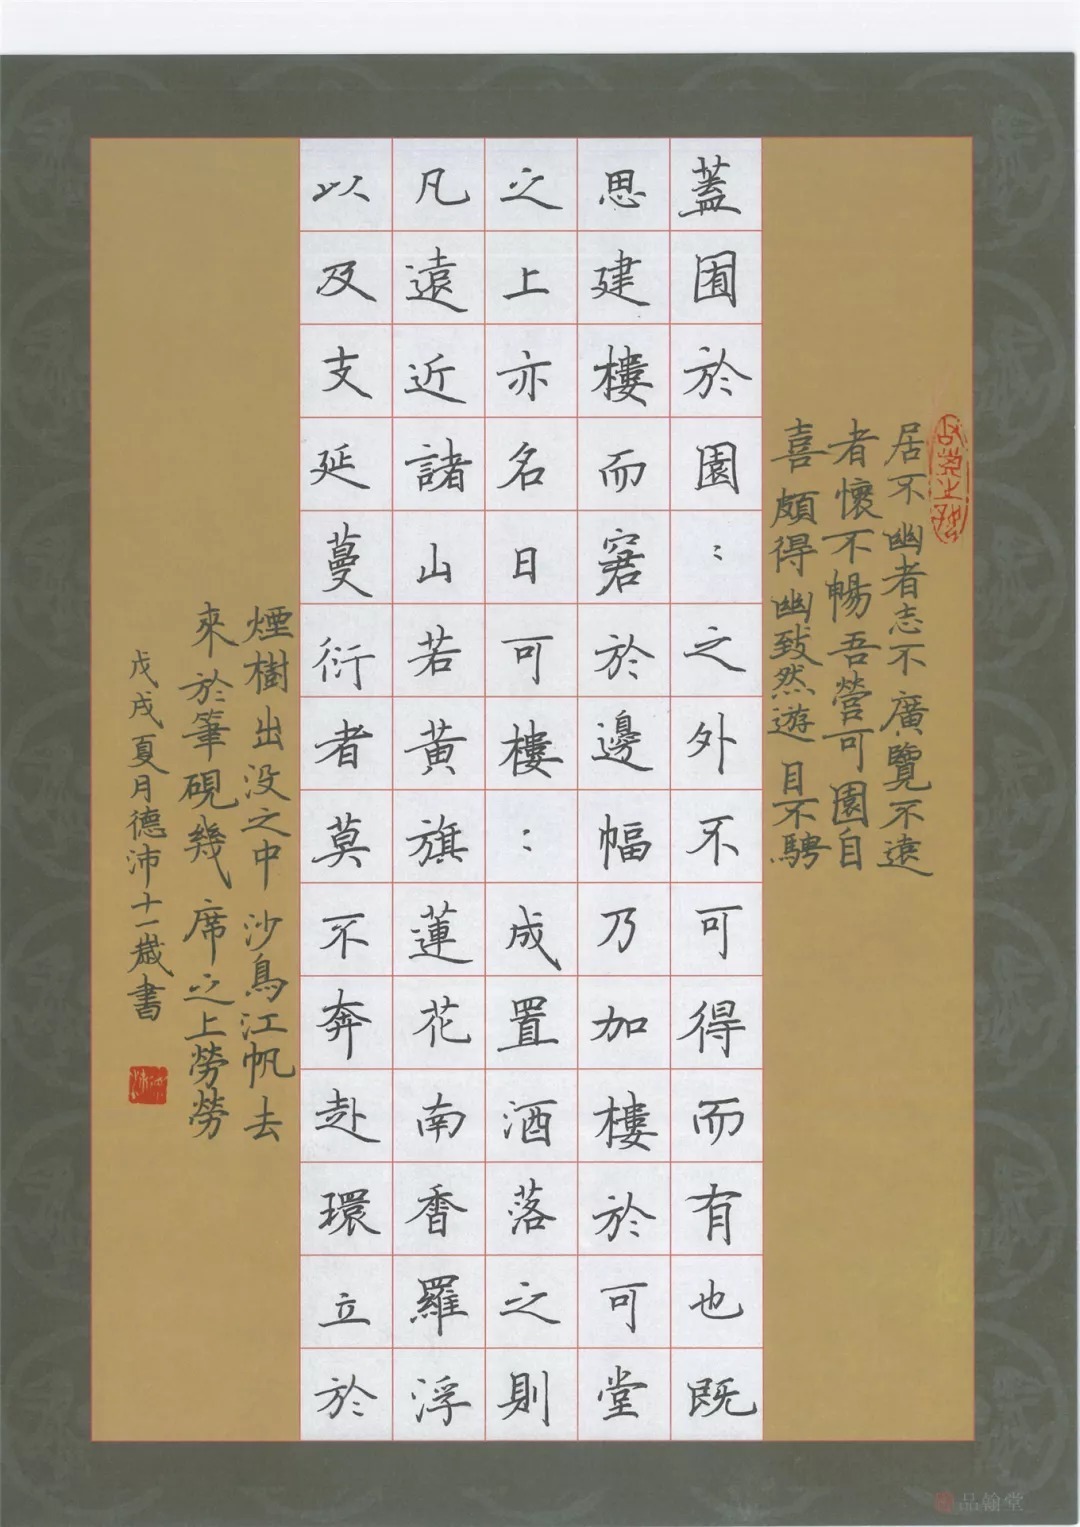 居不幽者志不廣覽不遠
者懷不暢吾營可園自
喜頗得幽致然遊目不騁
蓋囿於園：之外不可得而有也既
思建樓而窘於邊幅乃加樓於可堂
之上亦名曰可樓：成置酒落之則
凡遠近諸山若黃旗蓮花南香羅浮
以及支延蔓衍者莫不奔赴環立於
煙樹出没之中沙鳥江帆去
來於筆硯幾席之上勞勞
戊戌夏月德沛十一歲書
品翰堂